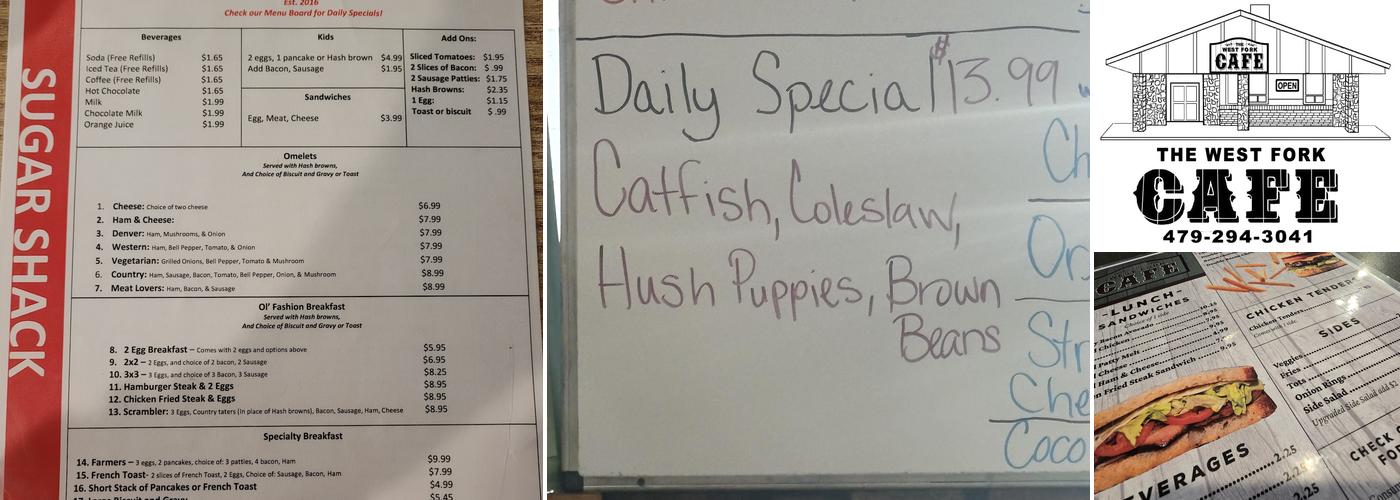 Est. 2016
Check our Menu Board for Daily Specials!
SUGAR SHACK
Beverages
Soda (Free Refills) $1.65
Iced Tea (Free Refills) $1.65
Coffee (Free Refills) $1.65
Hot Chocolate $1.65
Milk $1.99
Chocolate Milk $1.99
Orange Juice $1.99
Kids
2 eggs, 1 pancake or Hash brown $4.99
Add Bacon, Sausage $1.95
Sandwiches
Egg, Meat, Cheese $3.99
Add Ons:
Sliced Tomatoes: $1.95
2 Slices of Bacon: $ .99
2 Sausage Patties: $1.75
Hash Browns: $2.35
1 Egg: $1.15
Toast or biscuit $ .99
Omelets
Served with Hash browns,
And Choice of Biscuit and Gravy or Toast
1. Cheese: Choice of two cheese $6.99
2. Ham & Cheese: $7.99
3. Denver: Ham, Mushrooms, & Onion $7.99
4. Western: Ham, Bell Pepper, Tomato, & Onion $7.99
5. Vegetarian: Grilled Onions, Bell Pepper, Tomato & Mushroom $7.99
6. Country: Ham, Sausage, Bacon, Tomato, Bell Pepper, Onion, & Mushroom $8.99
7. Meat Lovers: Ham, Bacon, & Sausage $8.99
Ol' Fashion Breakfast
Served with Hash browns,
And Choice of Biscuit and Gravy or Toast
8. 2 Egg Breakfast – Comes with 2 eggs and options above $5.95
9. 2x2 – 2 Eggs, and choice of 2 bacon, 2 Sausage $6.95
10. 3x3 – 3 Eggs, and choice of 3 Bacon, 3 Sausage $8.25
11. Hamburger Steak & 2 Eggs $8.95
12. Chicken Fried Steak & Eggs $8.95
13. Scrambler: 3 Eggs, Country taters (In place of Hash browns), Bacon, Sausage, Ham, Cheese $8.95
Specialty Breakfast
14. Farmers – 3 eggs, 2 pancakes, choice of: 3 patties, 4 bacon, Ham $9.99
15. French Toast- 2 slices of French Toast, 2 Eggs, Choice of: Sausage, Bacon, Ham $7.99
16. Short Stack of Pancakes or French Toast $4.99
$5.45
Daily Special $13.99
Catfish, Coleslaw,
Hush Puppies, Brown
Beans
Ch
Or
Str
Che
Coco
THE WEST FORK
CAFE
OPEN
THE WEST FORK
CAFE
479-294-3041
CAFE
-LUNCH-
SANDWICHES
Choice of 1 side
Bacon Avocado 10.25
Chicken 9.95
Patty Melt 7.95
Cheese 9.95
Ham & Cheese
Fried Steak Sandwich 9.95
CHICKEN TENDER
Chicken Tenders
SIDES
Veggies
Fries
Tots
Onion Rings
Side Salad
Upgraded Side Salad add $2
VERAGES
2.25
2.25
CHECK
FO